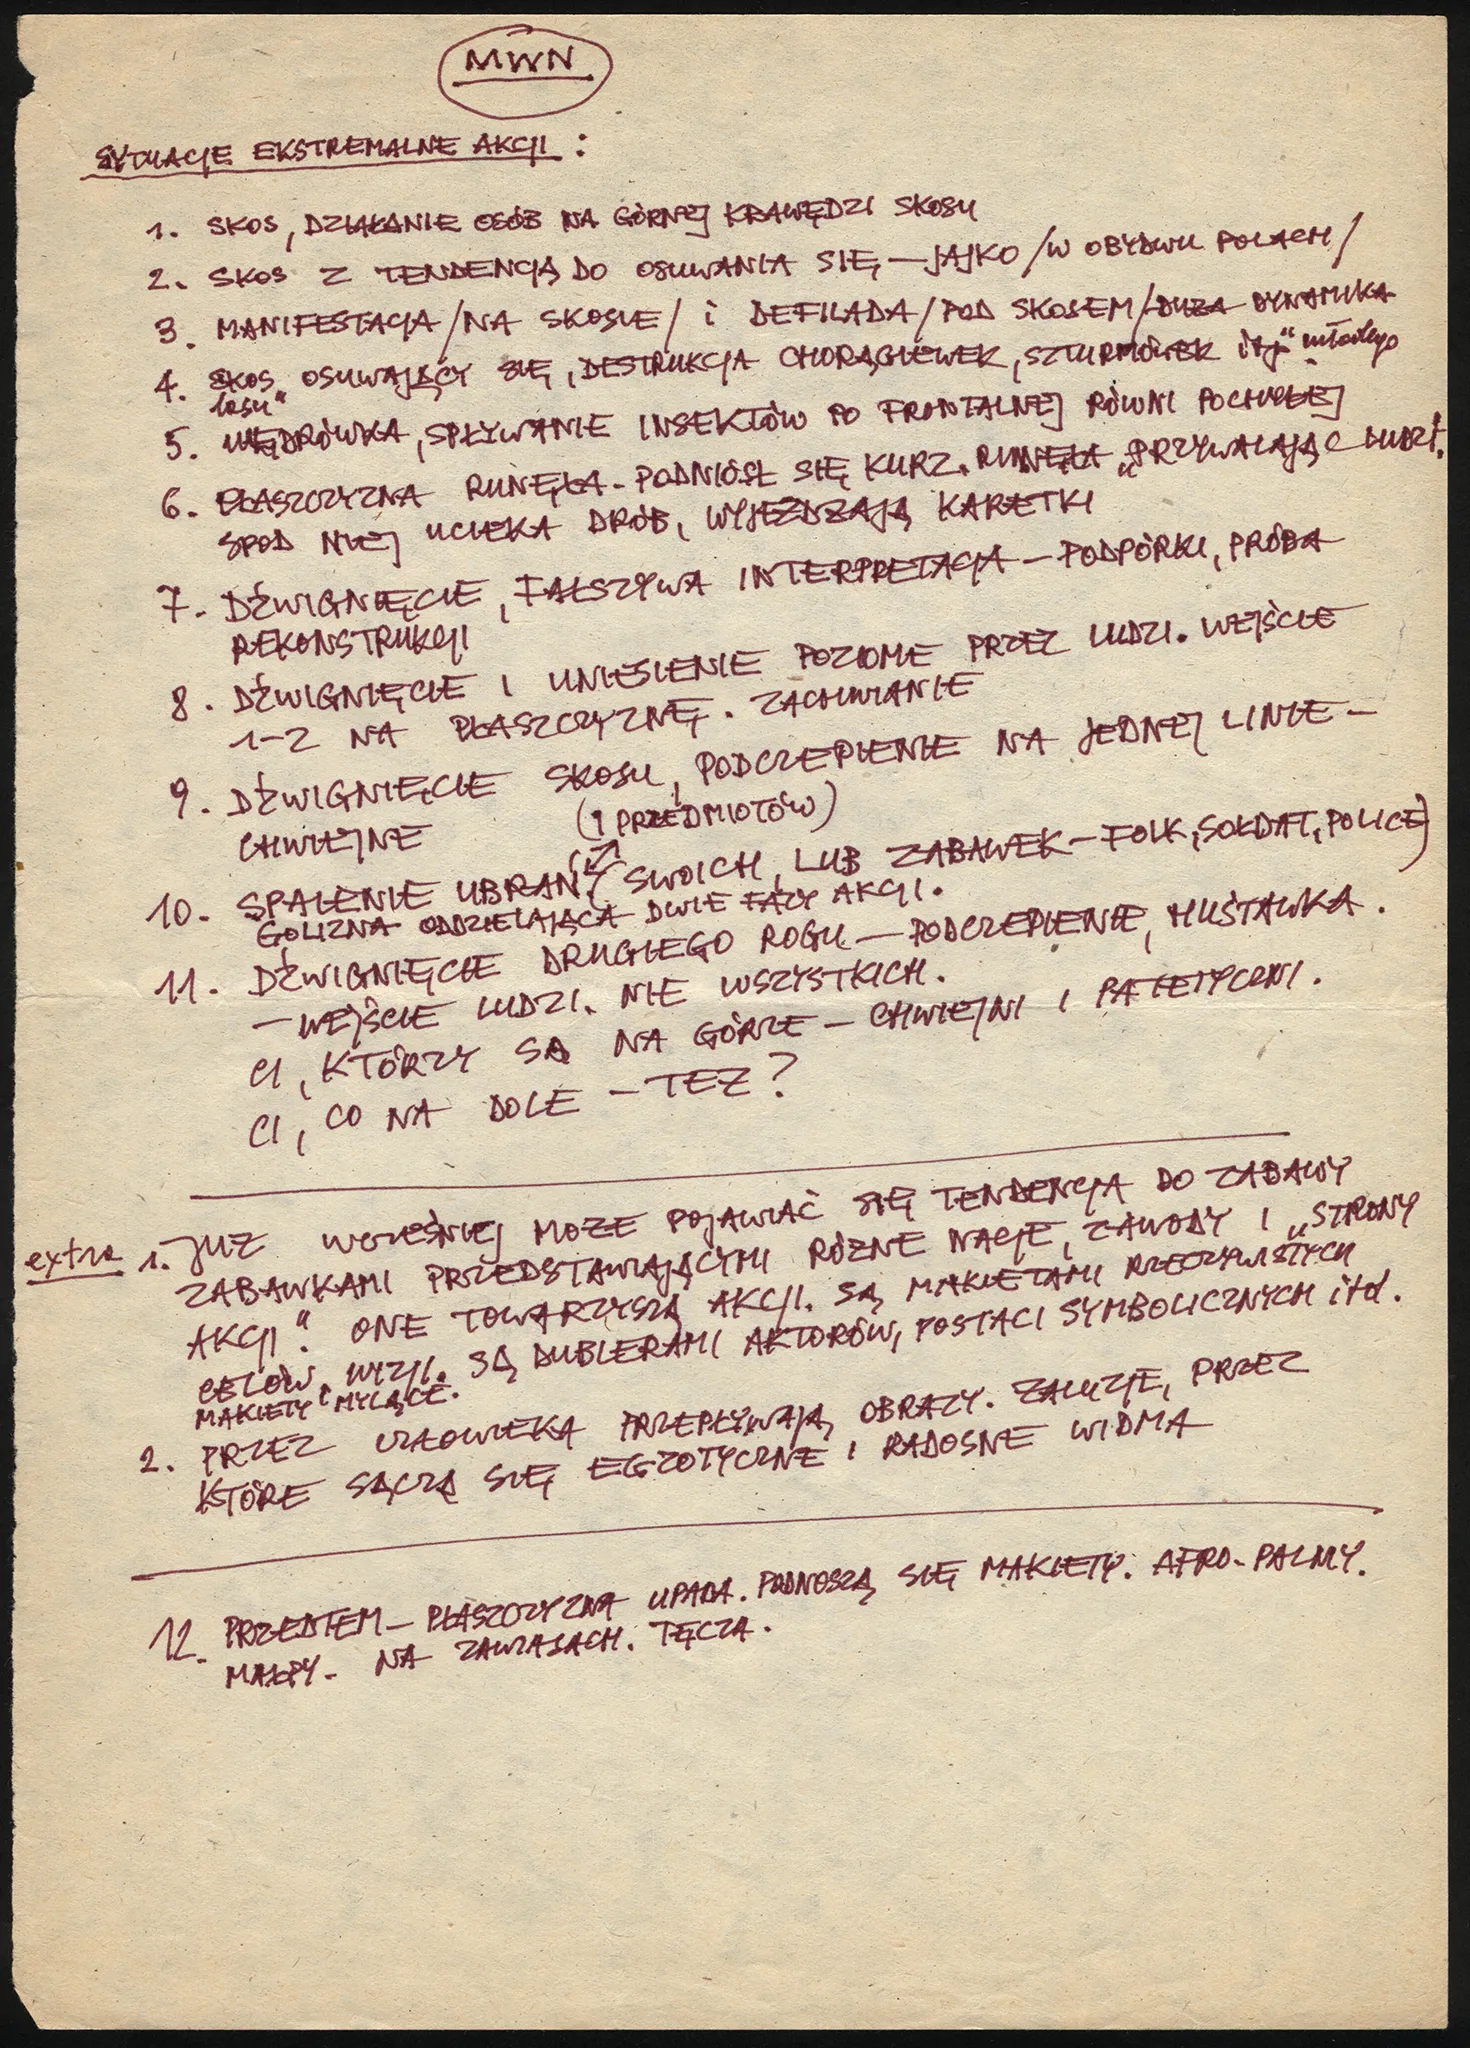 MWN
SYTUACJE EKSTREMALNE AKCJI :
1. SKOS, DZIAŁANIE OSÓB NA GÓRNEJ KRAWĘDZI SKOSU
2. SKOS Z TENDENCJĄ DO OSUWANIA SIĘ – JAJKO /W OBYDWU POLACH/
3. MANIFESTACJA /NA SKOSIE/ i DEFILADA /POD SKOSEM/ DUŻA DYNAMIKA
4. SKOS OSUWAJĄCY SIĘ, DESTRUKCJA CHORĄGIEWEK, SZTURMÓWEK itj „młodego
lasu"
5. WĘDRÓWKA, SPŁYWANIE INSEKTÓW PO FRONTALNEJ RÓWNI POCHYŁEJ
6. PŁASZCZYZNA RUNĘŁA. PODNIÓSŁ SIĘ KURZ. RUNĘŁA „PRZYWALAJĄC LUDZI.
SPOD NIEJ UCIEKA DRÓB, WYJEŻDŻAJĄ KARETKI
7. DŹWIGNIĘCIE, FAŁSZYWA INTERPRETACJA – PODPÓRKI, PRÓBA
REKONSTRUKCJI
8. DŹWIGNIĘCIE I UNIESIENIE POZIOME PRZEZ LUDZI. WEJŚCIE
1–2 NA PŁASZCZYZNĘ. ZACHWIANIE
9. DŹWIGNIĘCIE SKOSU, PODCZEPIENIE NA JEDNEJ LINIE –
CHWIEJNE
(I PRZEDMIOTÓW)
10. SPALENIE UBRAŃ SWOICH, LUB ZABAWEK – FOLK, SOŁDAT, POLICEJ
GOLIZNA ODDZIELAJĄCA DWIE FAZY AKCJI.
11. DŹWIGNIĘCIE DRUGIEGO ROGU – PODCZEPIENIE, HUŚTAWKA.
– WEJŚCIE LUDZI. NIE WSZYSTKICH.
CI, KTÓRZY SĄ NA GÓRZE – CHWIEJNI I PATETYCZNI.
CI, CO NA DOLE – TEŻ?
extra 1. JUŻ WCZEŚNIEJ MOŻE POJAWIAĆ SIĘ TENDENCJA DO ZABAWY
ZABAWKAMI PRZEDSTAWIAJĄCYMI RÓŻNE NACJE, ZAWODY I „STRONY
AKCJI". ONE TOWARZYSZĄ AKCJI. SĄ MAKIETAMI RZECZYWISTYCH
CELÓW, WIZJI. SĄ DUBLERAMI AKTORÓW, POSTACI SYMBOLICZNYCH itd.
MAKIETY MYLĄCE.
2. PRZEZ CZŁOWIEKA PRZEPŁYWAJĄ OBRAZY. ŻALUZJE, PRZEZ
KTÓRE SĄCZĄ SIĘ EGZOTYCZNE I RADOSNE WIDMA
12. PRZEDTEM – PŁASZCZYZNA UPADA. PODNOSZĄ SIĘ MAKIETY. AFRO-PALMY.
MAŁPY – NA ZAWIASACH. TĘCZA.